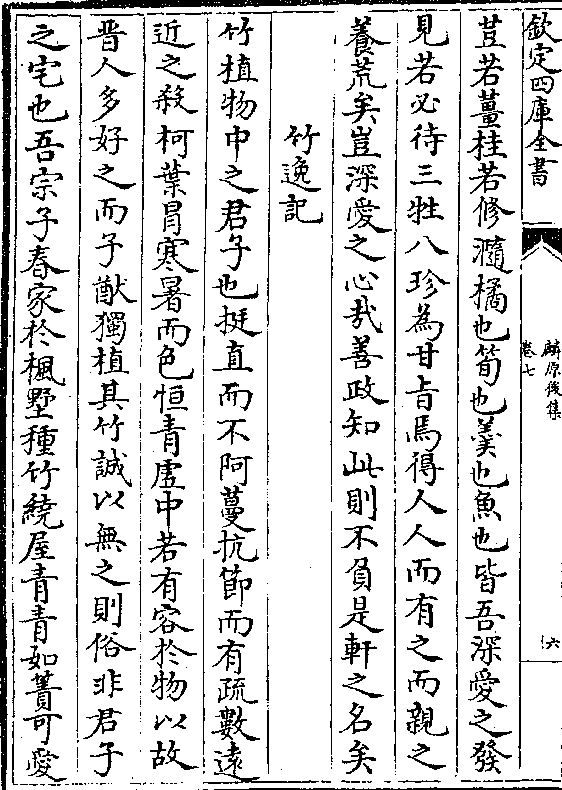 欽定四庫全書
麟原後集
卷七
六
荳若薑桂若修瀡橘也筍也羮也魚也皆吾深愛之發
見若必待三牲八珍為甘㫖焉得人人而有之而親之
養荒矣豈深愛之心㢤善政知此則不負是軒之名矣
竹逸記
竹植物中之君子也挺直而不阿蔓抗節而有疏數遠
近之殺柯葉冒寒暑而色恒青虛中若有容於物以故
晋人多好之而子猷獨植其竹誠以無之則俗非君子
之宅也吾宗子春家於楓墅種竹繞屋青青如簀可愛